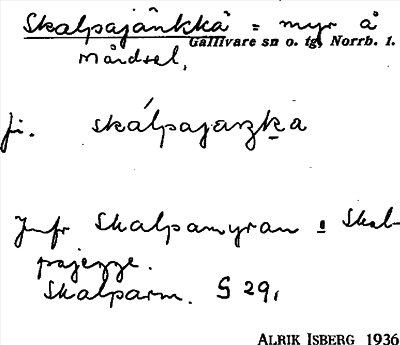 Skalpajänkkä = myr å
Gällivare sn o. tg, Norrb. l.
Mårdsel,
fi. skálpajaŋka
Jmfr Skalpamyran o Skal-
pajegge.
Skalparm. S 29,
ALRIK ISBERG 1936